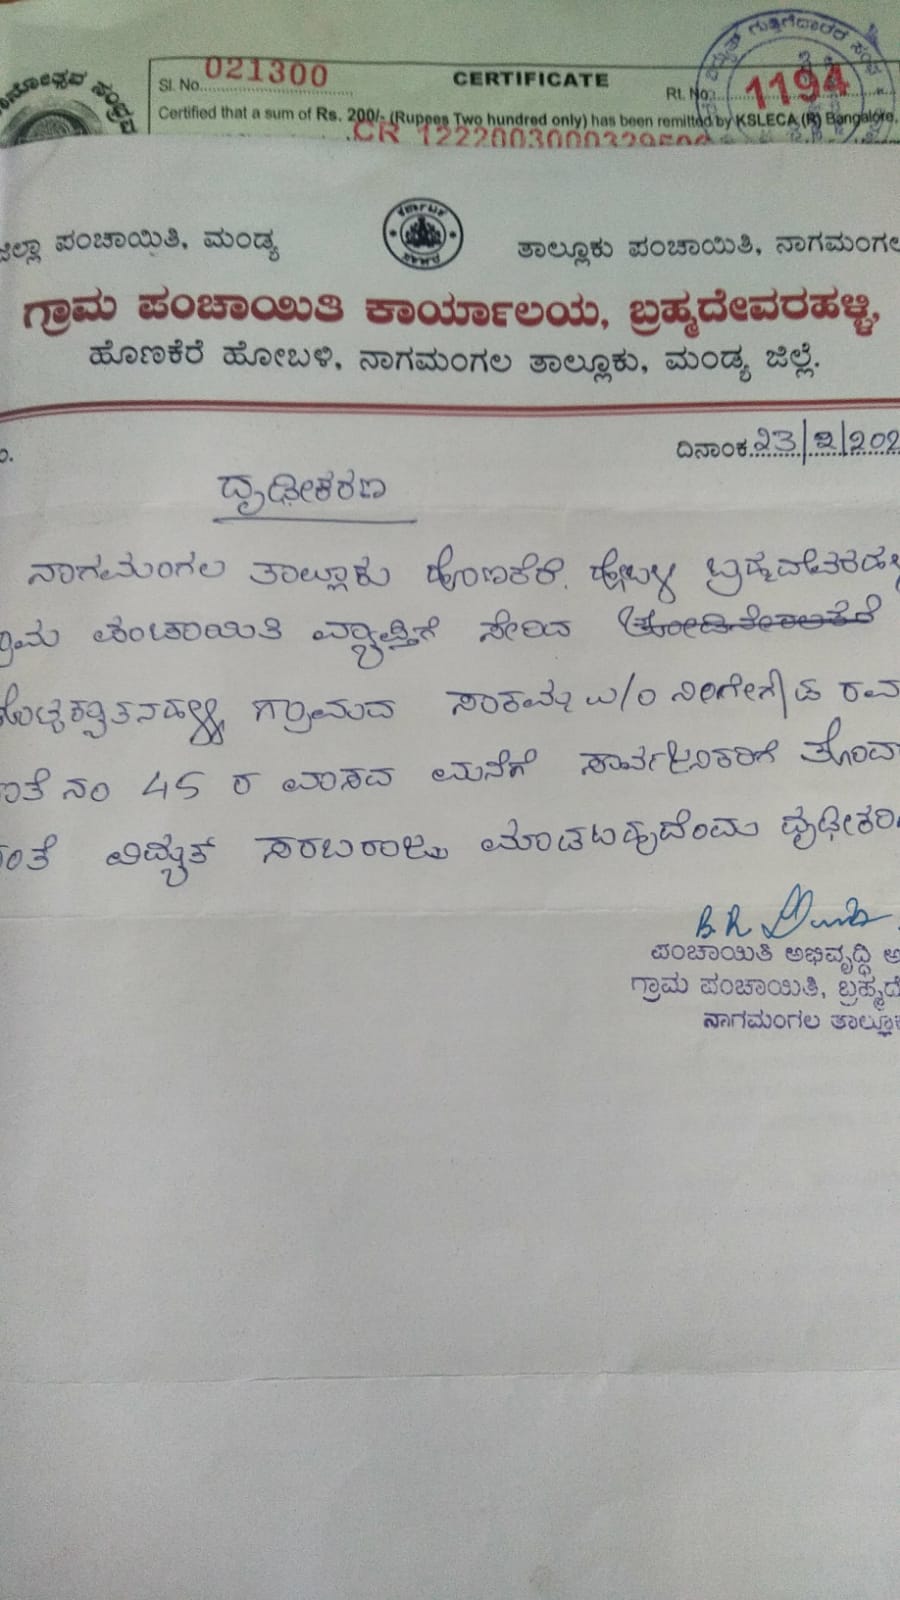 Sl. No. 021300 CERTIFICATE Rt. No. 1194
Certified that a sum of Rs. 200/- (Rupees Two hundred only) has been remitted by KSLECA (R) Bangalore.
CR
ಜಿಲ್ಲಾ ಪಂಚಾಯಿತಿ, ಮಂಡ್ಯ
ತಾಲ್ಲೂಕು ಪಂಚಾಯಿತಿ, ನಾಗಮಂಗಲ
ಗ್ರಾಮ ಪಂಚಾಯಿತಿ ಕಾರ್ಯಾಲಯ, ಬ್ರಹ್ಮದೇವರಹಳ್ಳಿ,
ಹೊಣಕೆರೆ ಹೋಬಳಿ, ನಾಗಮಂಗಲ ತಾಲ್ಲೂಕು, ಮಂಡ್ಯ ಜಿಲ್ಲೆ.
ದಿನಾಂಕ 23/2/202
ದೃಢೀಕರಣ
ನಾಗಮಂಗಲ ತಾಲ್ಲೂಕು ಹೊಣಕೆರೆ ಹೋಬಳಿ ಬ್ರಹ್ಮದೇವರಹಳ್ಳಿ
ಗ್ರಾಮ ಪಂಚಾಯಿತಿ ವ್ಯಾಪ್ತಿಗೆ ಸೇರಿದ
ಗ್ರಾಮದ ಸಾಕಮ್ಮ W/O ರವ
ನಂ 45 ರ ವಾಸದ ಮನೆಗೆ ಸಾರ್ವಜನಿಕರಿಗೆ ತೊಂದ
ವಿದ್ಯುತ್ ಸರಬರಾಜು ಮಾಡಬಹುದೆಂದು ದೃಢೀಕರಿ
B.R
ಪಂಚಾಯಿತಿ ಅಭಿವೃದ್ಧಿ ಅ
ಗ್ರಾಮ ಪಂಚಾಯಿತಿ, ಬ್ರಹ್ಮದೇ
ನಾಗಮಂಗಲ ತಾಲ್ಲೂಕ